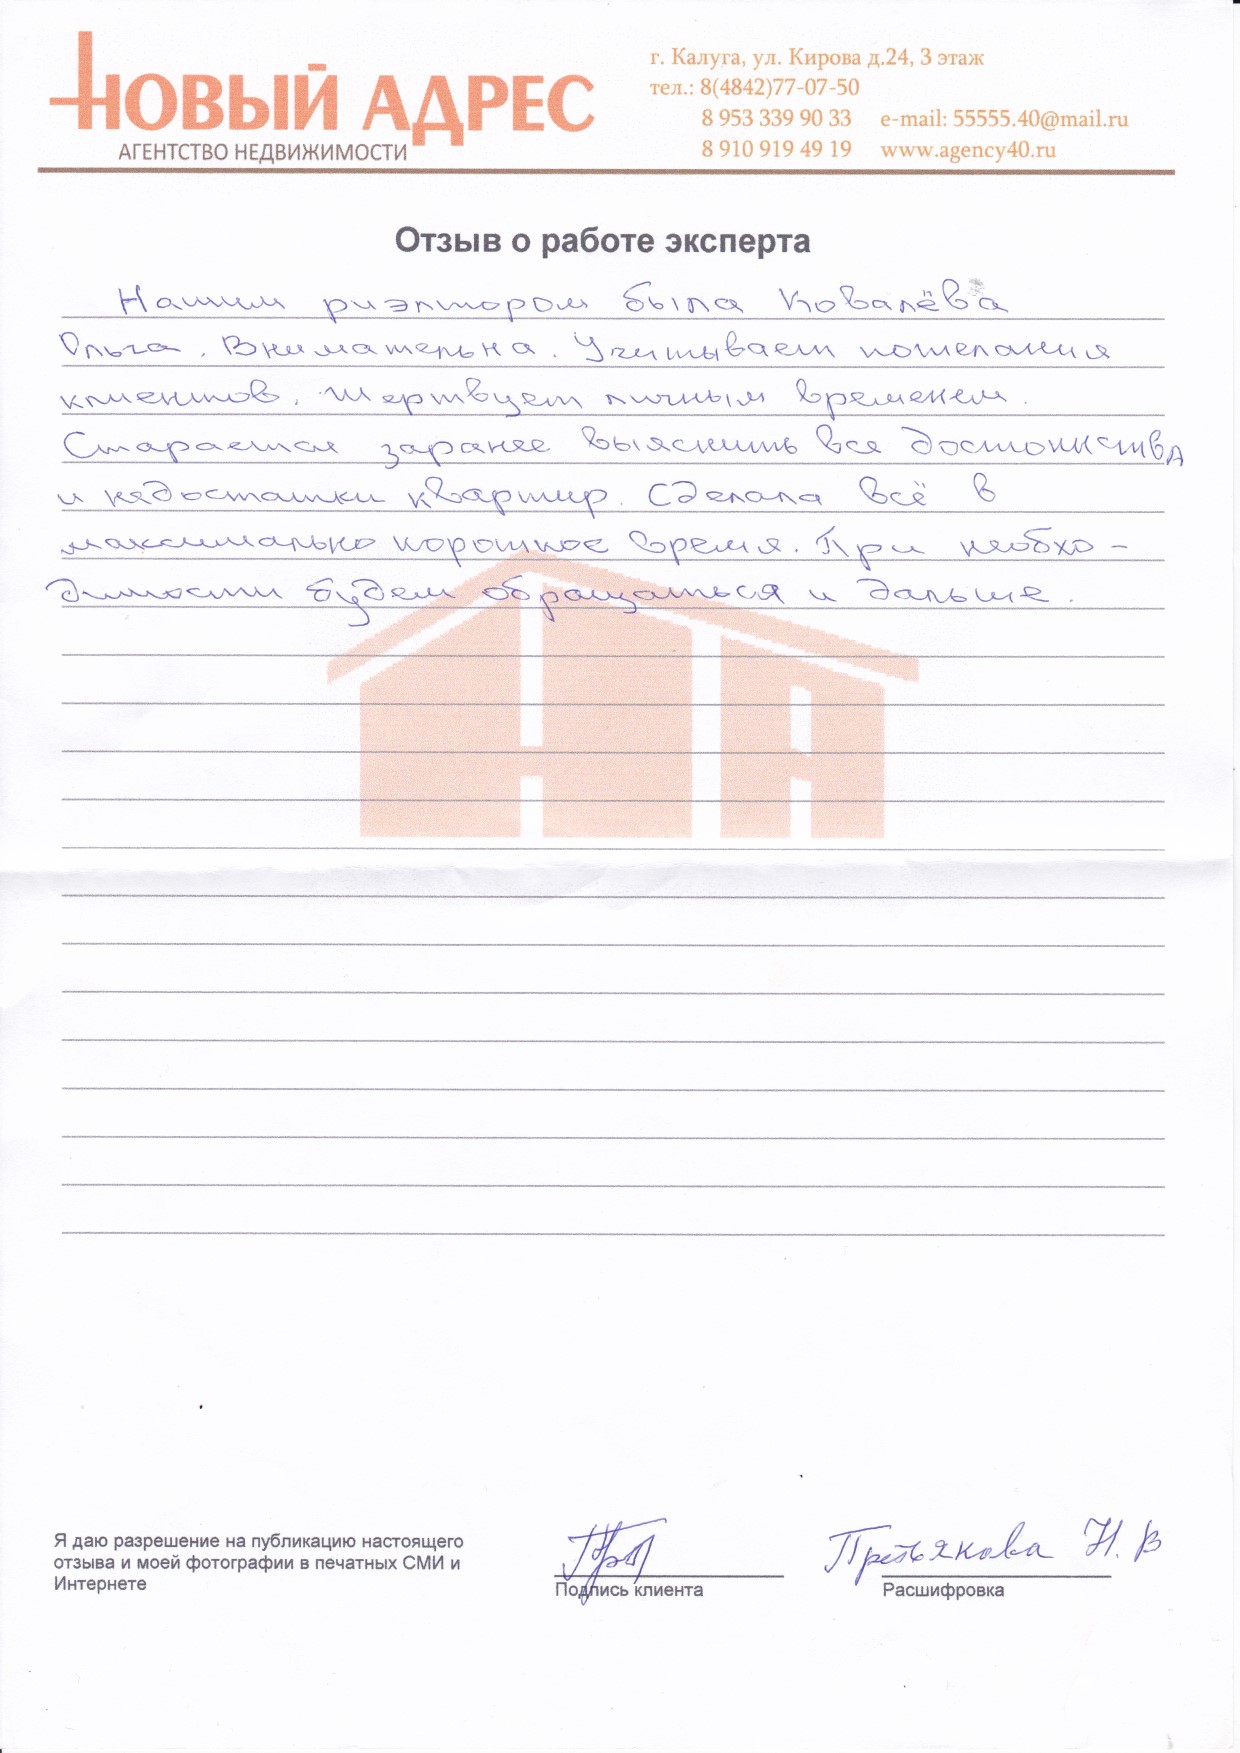 НОВЫЙ АДРЕС
АГЕНТСТВО НЕДВИЖИМОСТИ
г. Калуга, ул. Кирова д.24, 3 этаж
тел.: 8(4842)77-07-50
8 953 339 90 33 e-mail: 55555.40@mail.ru
8 910 919 49 19 www.agency40.ru
Отзыв о работе эксперта
Нашим риэлтором была Ковалёва
Ольга. Внимательна. Учитывает пожелания
клиентов. Жертвует личным временем.
Старается заранее выяснить все достоинства
и недостатки квартир. Сделала всё в
максимально короткое время. При необхо-
димости будем обращаться и дальше.
НА
Я даю разрешение на публикацию настоящего
отзыва и моей фотографии в печатных СМИ и
Интернете
Подпись клиента
Третьякова Н. В
Расшифровка